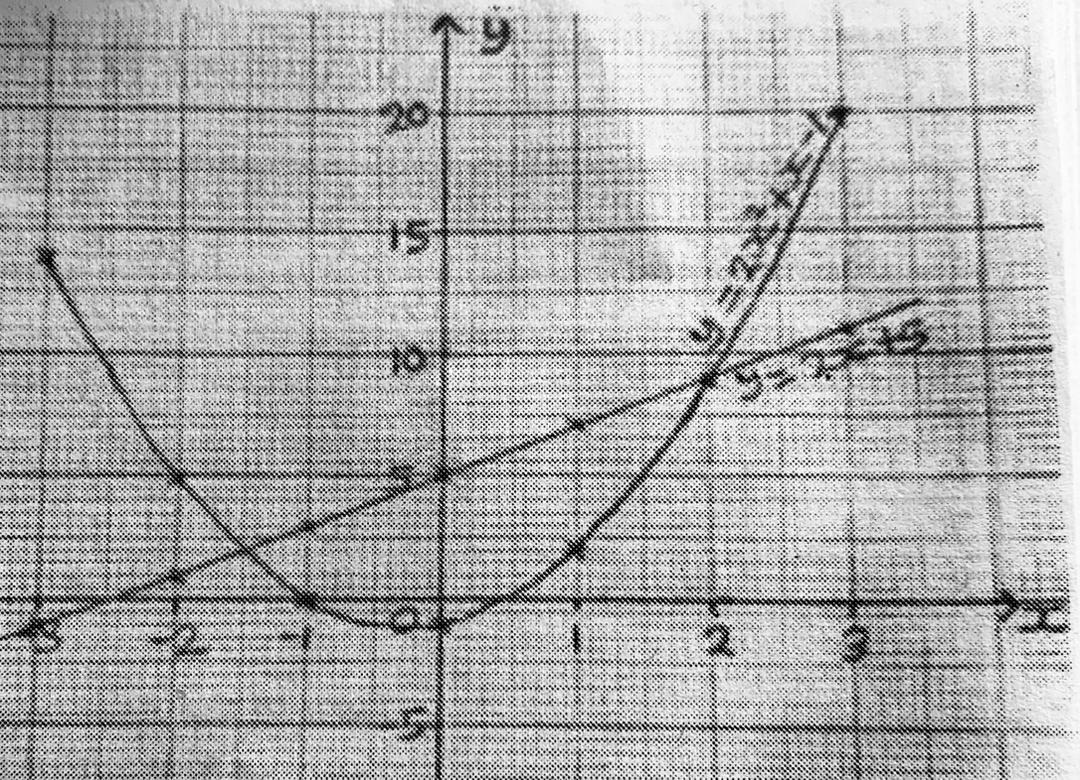 y
20
15
10
5
0
-5
-3
-2
-1
1
2
3
x
y = 2x²+x-1
y = 2x+5